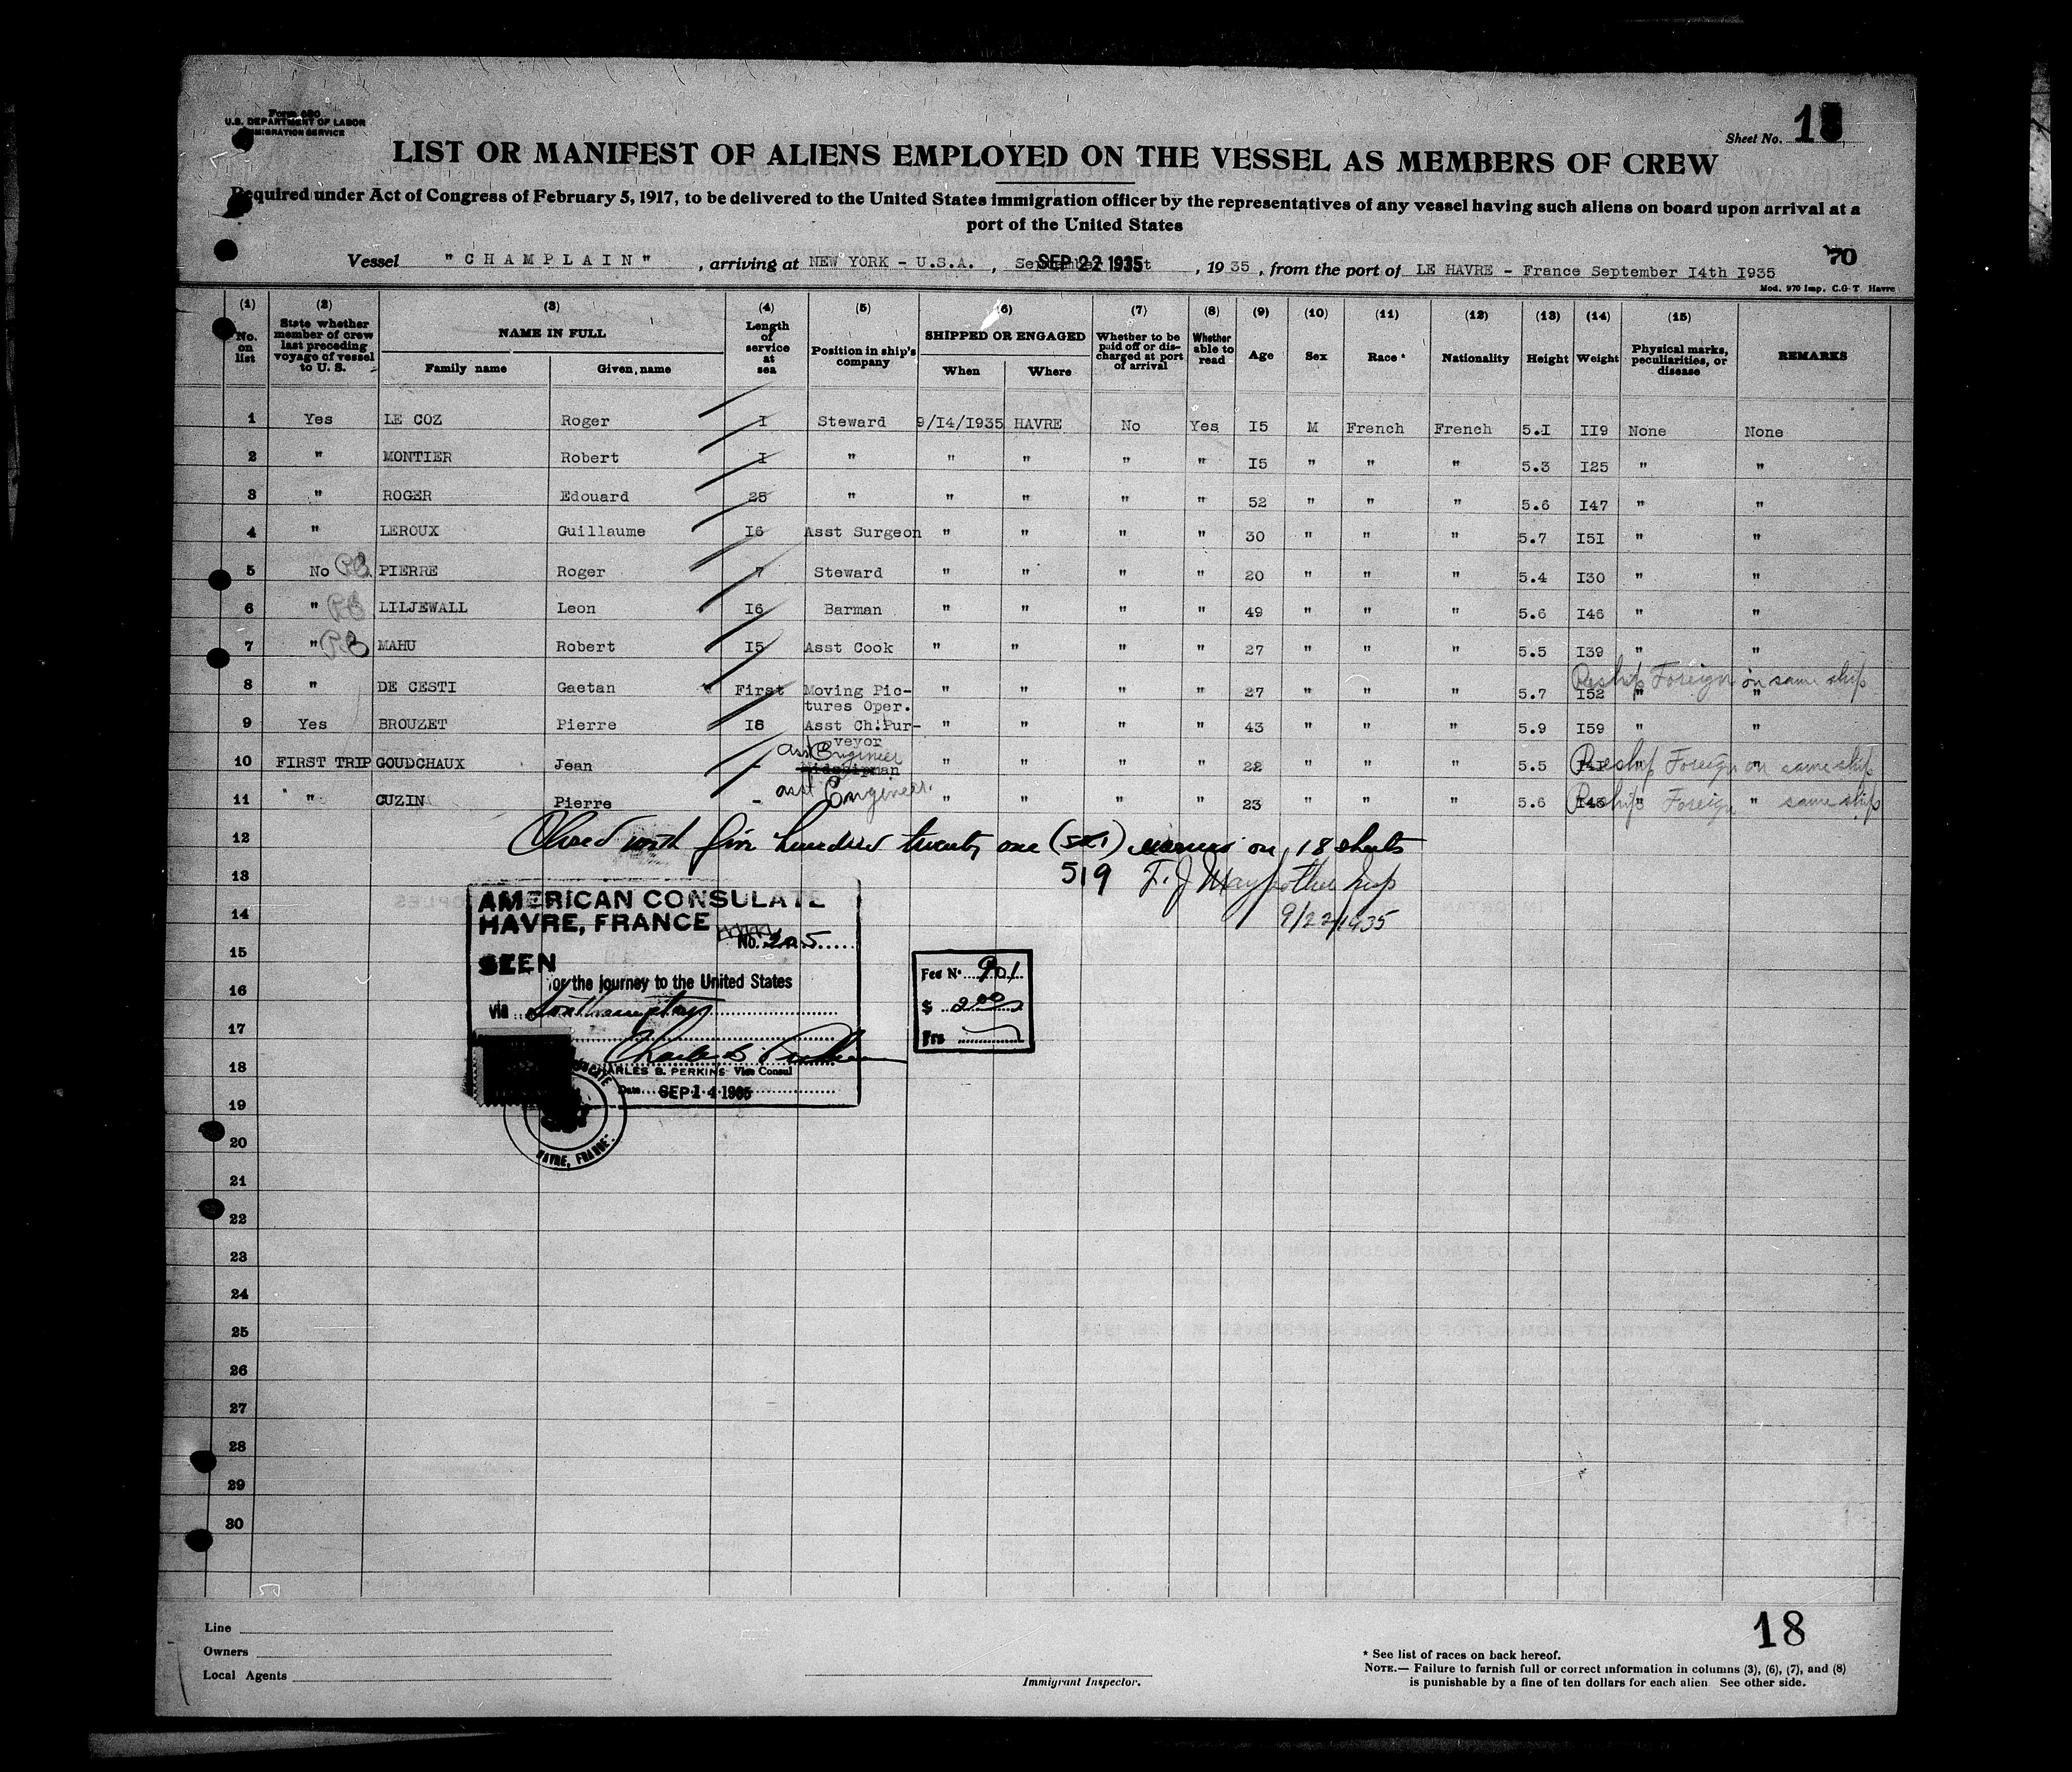 Form 680
U.S. DEPARTMENT OF LABOR
IMMIGRATION SERVICE
Sheet No. 18
LIST OR MANIFEST OF ALIENS EMPLOYED ON THE VESSEL AS MEMBERS OF CREW
Required under Act of Congress of February 5, 1917, to be delivered to the United States immigration officer by the representatives of any vessel having such aliens on board upon arrival at a
port of the United States
70
Vessel "CHAMPLAIN", arriving at NEW YORK - U.S.A., SEP 22 1935, 1935, from the port of LE HAVRE - France September I4th I935
Mod. 970 Imp. C.G T. Havre
(1) (2) (3) (4) (5) (6) (7) (8) (9) (10) (11) (12) (13) (14) (15)
No. on list State whether member of crew last preceding voyage of vessel to U. S. NAME IN FULL Family name Given name Length of service at sea Position in ship's company SHIPPED OR ENGAGED When Where Whether to be paid off or discharged at port of arrival Whether able to read Age Sex Race * Nationality Height Weight Physical marks, peculiarities, or disease REMARKS
1 Yes LE COZ Roger I Steward 9/I4/I935 HAVRE No Yes I5 M French French 5.I II9 None None
2 " MONTIER Robert I " " " " " I5 " " " 5.3 I25 " "
3 " ROGER Edouard 25 " " " " " 52 " " " 5.6 I47 " "
4 " LEROUX Guillaume I6 Asst Surgeon " " " " 30 " " " 5.7 I5I " "
5 No PIERRE Roger 7 Steward " " " " 20 " " " 5.4 I30 " "
6 " LILJEWALL Leon I6 Barman " " " " 49 " " " 5.6 I46 " "
7 " MAHU Robert I5 Asst Cook " " " " 27 " " " 5.5 I39 " "
8 " DE CESTI Gaetan First Moving Pictures Oper. " " " " 27 " " " 5.7 I52 " " Reship Foreign on same ship
9 Yes BROUZET Pierre I8 Asst Ch.Purveyor " " " " 43 " " " 5.9 I59 " "
10 FIRST TRIP GOUDCHAUX Jean - Midshipman asst Engineer " " " " 22 " " " 5.5 " Reship Foreign on same ship
11 " CUZIN Pierre - asst Engineer " " " " 23 " " " 5.6 I45 " Reship Foreign " same ship
12
Closed with five hundred twenty one (521) names on 18 sheets
13
519 F. J.
14
9/22/1935
AMERICAN CONSULATE
HAVRE, FRANCE
No. 205
SEEN
for the journey to the United States
via Southampton
CHARLES B. PERKINS Vice Consul
Date SEP 14 1935
HAVRE, FRANCE
Fee No. 901
$ 2.00
Frs
15
16
17
18
19
20
21
22
23
24
25
26
27
28
29
30
Line
Owners
Local Agents
Immigrant Inspector.
18
* See list of races on back hereof.
NOTE.— Failure to furnish full or correct information in columns (3), (6), (7), and (8)
is punishable by a fine of ten dollars for each alien See other side.